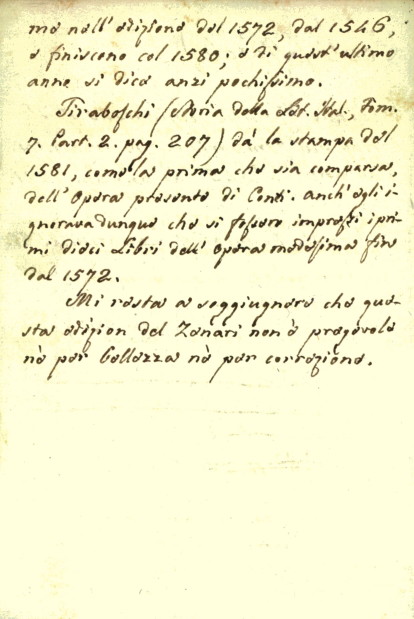 me nell' edizione del 1572, dal 1546,
e finiscono col 1580; e di quest' ultimo
anno si dice anzi pochissimo.
Tiraboschi (Storia della Let. Ital., Tom.
7. Part. 2. pag. 207) dá la stampa del
1581, come la prima che sia comparsa,
dell' Opera presente di Conti. Anch' egli i-
gnorava dunque che si fossero impressi i pri-
mi dieci Libri dell' opera medesima fin
dal 1572.
Mi resta a soggiugnere che que-
sta edizion del Zenari non è pregevole
nè per bellezza nè per correzione.